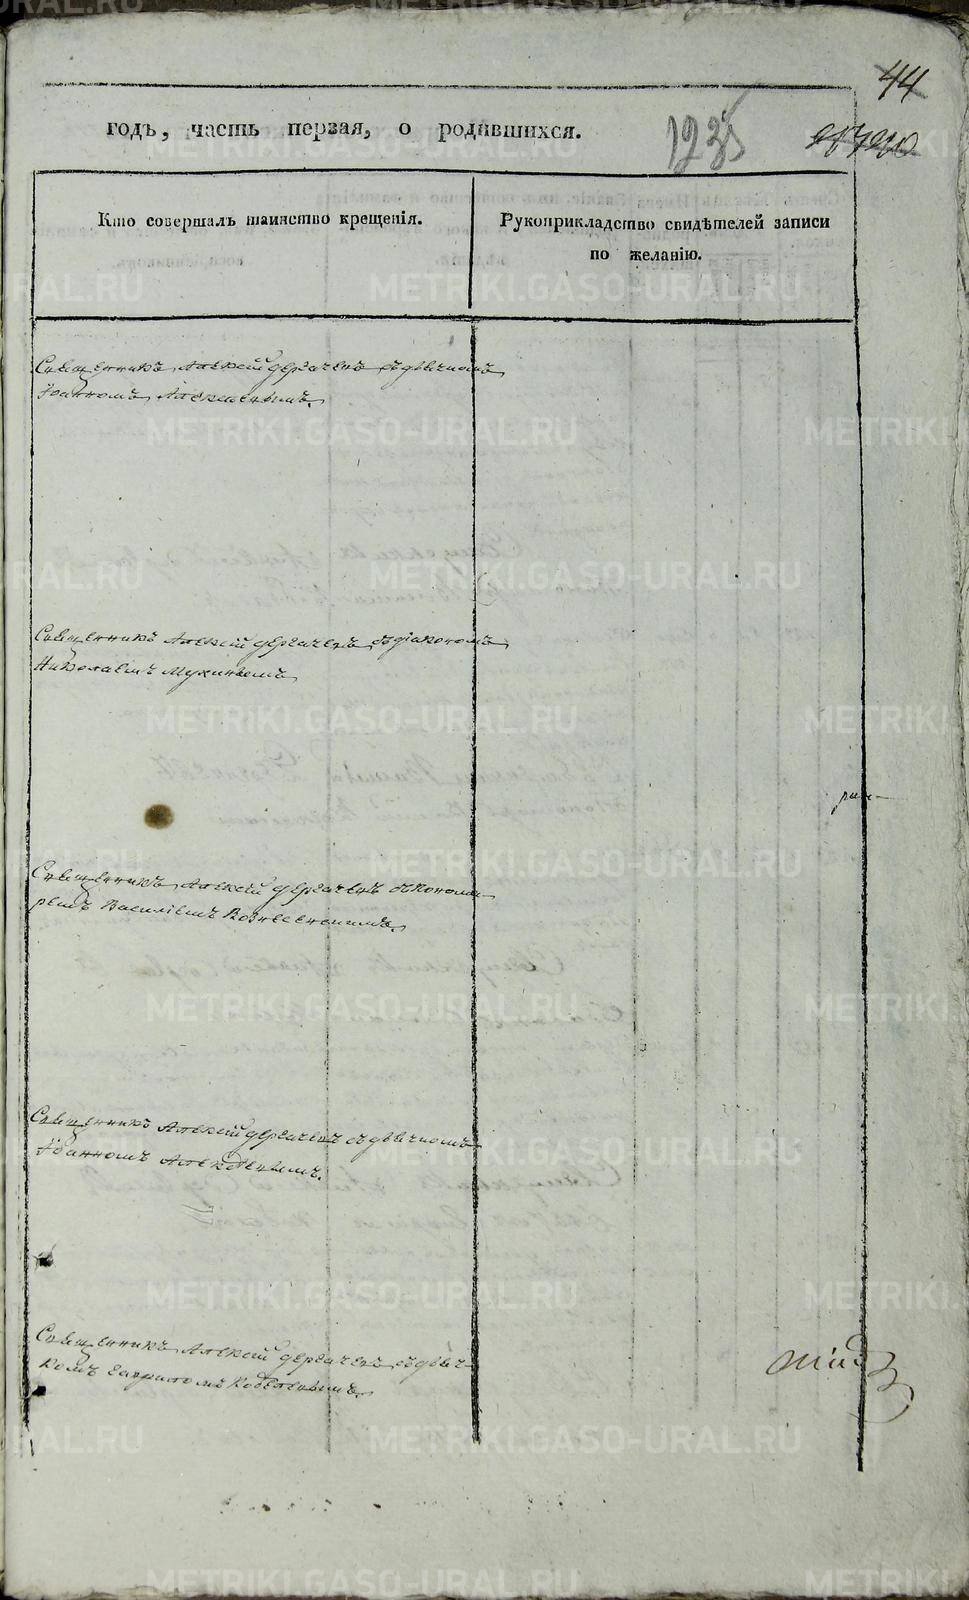 44
годъ, часть первая, о родившихся.
Кто совершалъ таинство крещенія.
Рукоприкладство свидѣтелей записи
по желанію.
Священникъ Алексій Дергачевъ съ дьячкомъ
Іоанномъ Алексеевымъ.
Священникъ Алексій Дергачевъ съ діакономъ
Николаемъ Мухинымъ
Священникъ Алексій Дергачевъ съ Понома-
ремъ Василіемъ Вознесенскимъ.
Священникъ Алексій Дергачевъ съ дьячкомъ
Іоанномъ Алексеевымъ.
Священникъ Алексій Дергачевъ съ дьяч-
комъ Гавриломъ
METRIKI.GASO-URAL.RU